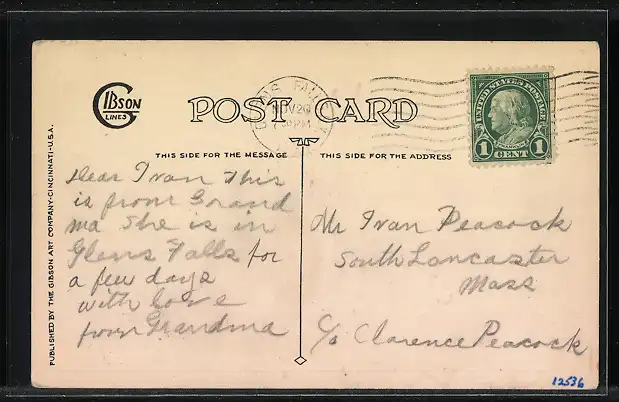 GIBSON
LINES
POST CARD
GLENS FALLS
NOV 26
7 30 PM
UNITED STATES POSTAGE
FRANKLIN
1 CENT 1
THIS SIDE FOR THE MESSAGE
THIS SIDE FOR THE ADDRESS
PUBLISHED BY THE GIBSON ART COMPANY·CINCINNATI·U.S.A.
Dear Ivan This
is from Grand
ma She is in
Glens Falls for
a few days
with love
from Grandma
Mr Ivan Peacock
South Lancaster
Mass
C/o Clarence Peacock
12536